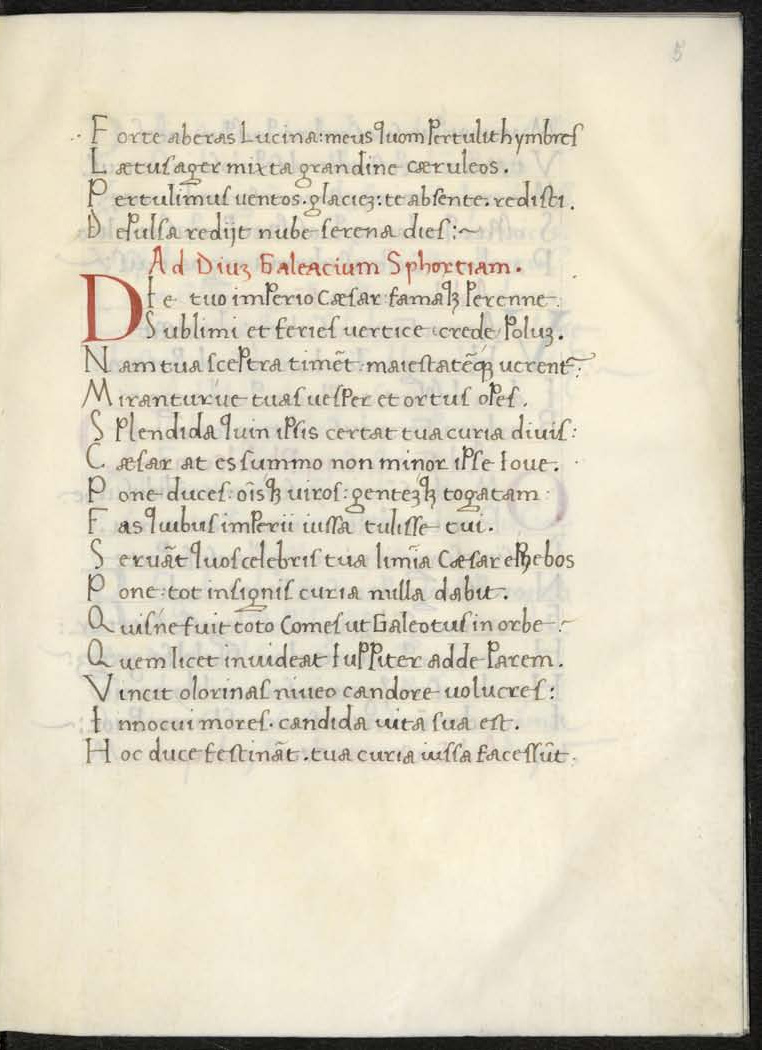 5
Forte aberas Lucina: meus quom pertulit hymbres
Lætus ager mixta grandine cæruleos.
Pertulimus uentos. glaciēq: te absente. redisti.
Depulsa redijt nube serena dies:~
Ad Diuꝫ Galeacium Sphortiam.
Dite tuo imperio Cæsar famaqꝫ perenne.
Sublimi et feries uertice crede poluꝫ.
Nam tua sceptra timēt maiestatēqꝫ uerent᷑:
Miranturúe tuas uesper et ortus opes.
Splendida quin ipsis certat tua curia diuis:
Cæsar at es summo non minor ipse Ioue.
Pone duces: oīsqꝫ uiros: genteꝫqꝫ togatam:
Fas quibus imperii iussa tulisse tui.
Seruāt quos celebris tua limīa Cæsar ephebos
Pone: tot insignis curia nulla dabit.
Quisńe fuit toto Comes ut Galeotus in orbe:
Quem licet inuideat Iuppiter adde parem.
Vincit olorinas niueo candore uolucres:
Innocui mores. candida uita sua est.
Hoc duce festināt. tua curia iussa facessūt.